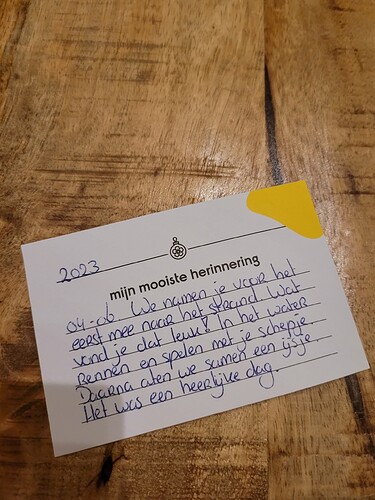 2023
mijn mooiste herinnering
04-06. We namen je voor het
eerst mee naar het strand. Wat
vond je dat leuk! In het water
Rennen en spelen met je schepje.
Daarna aten we samen een ijsje.
Het was een heerlijke dag.